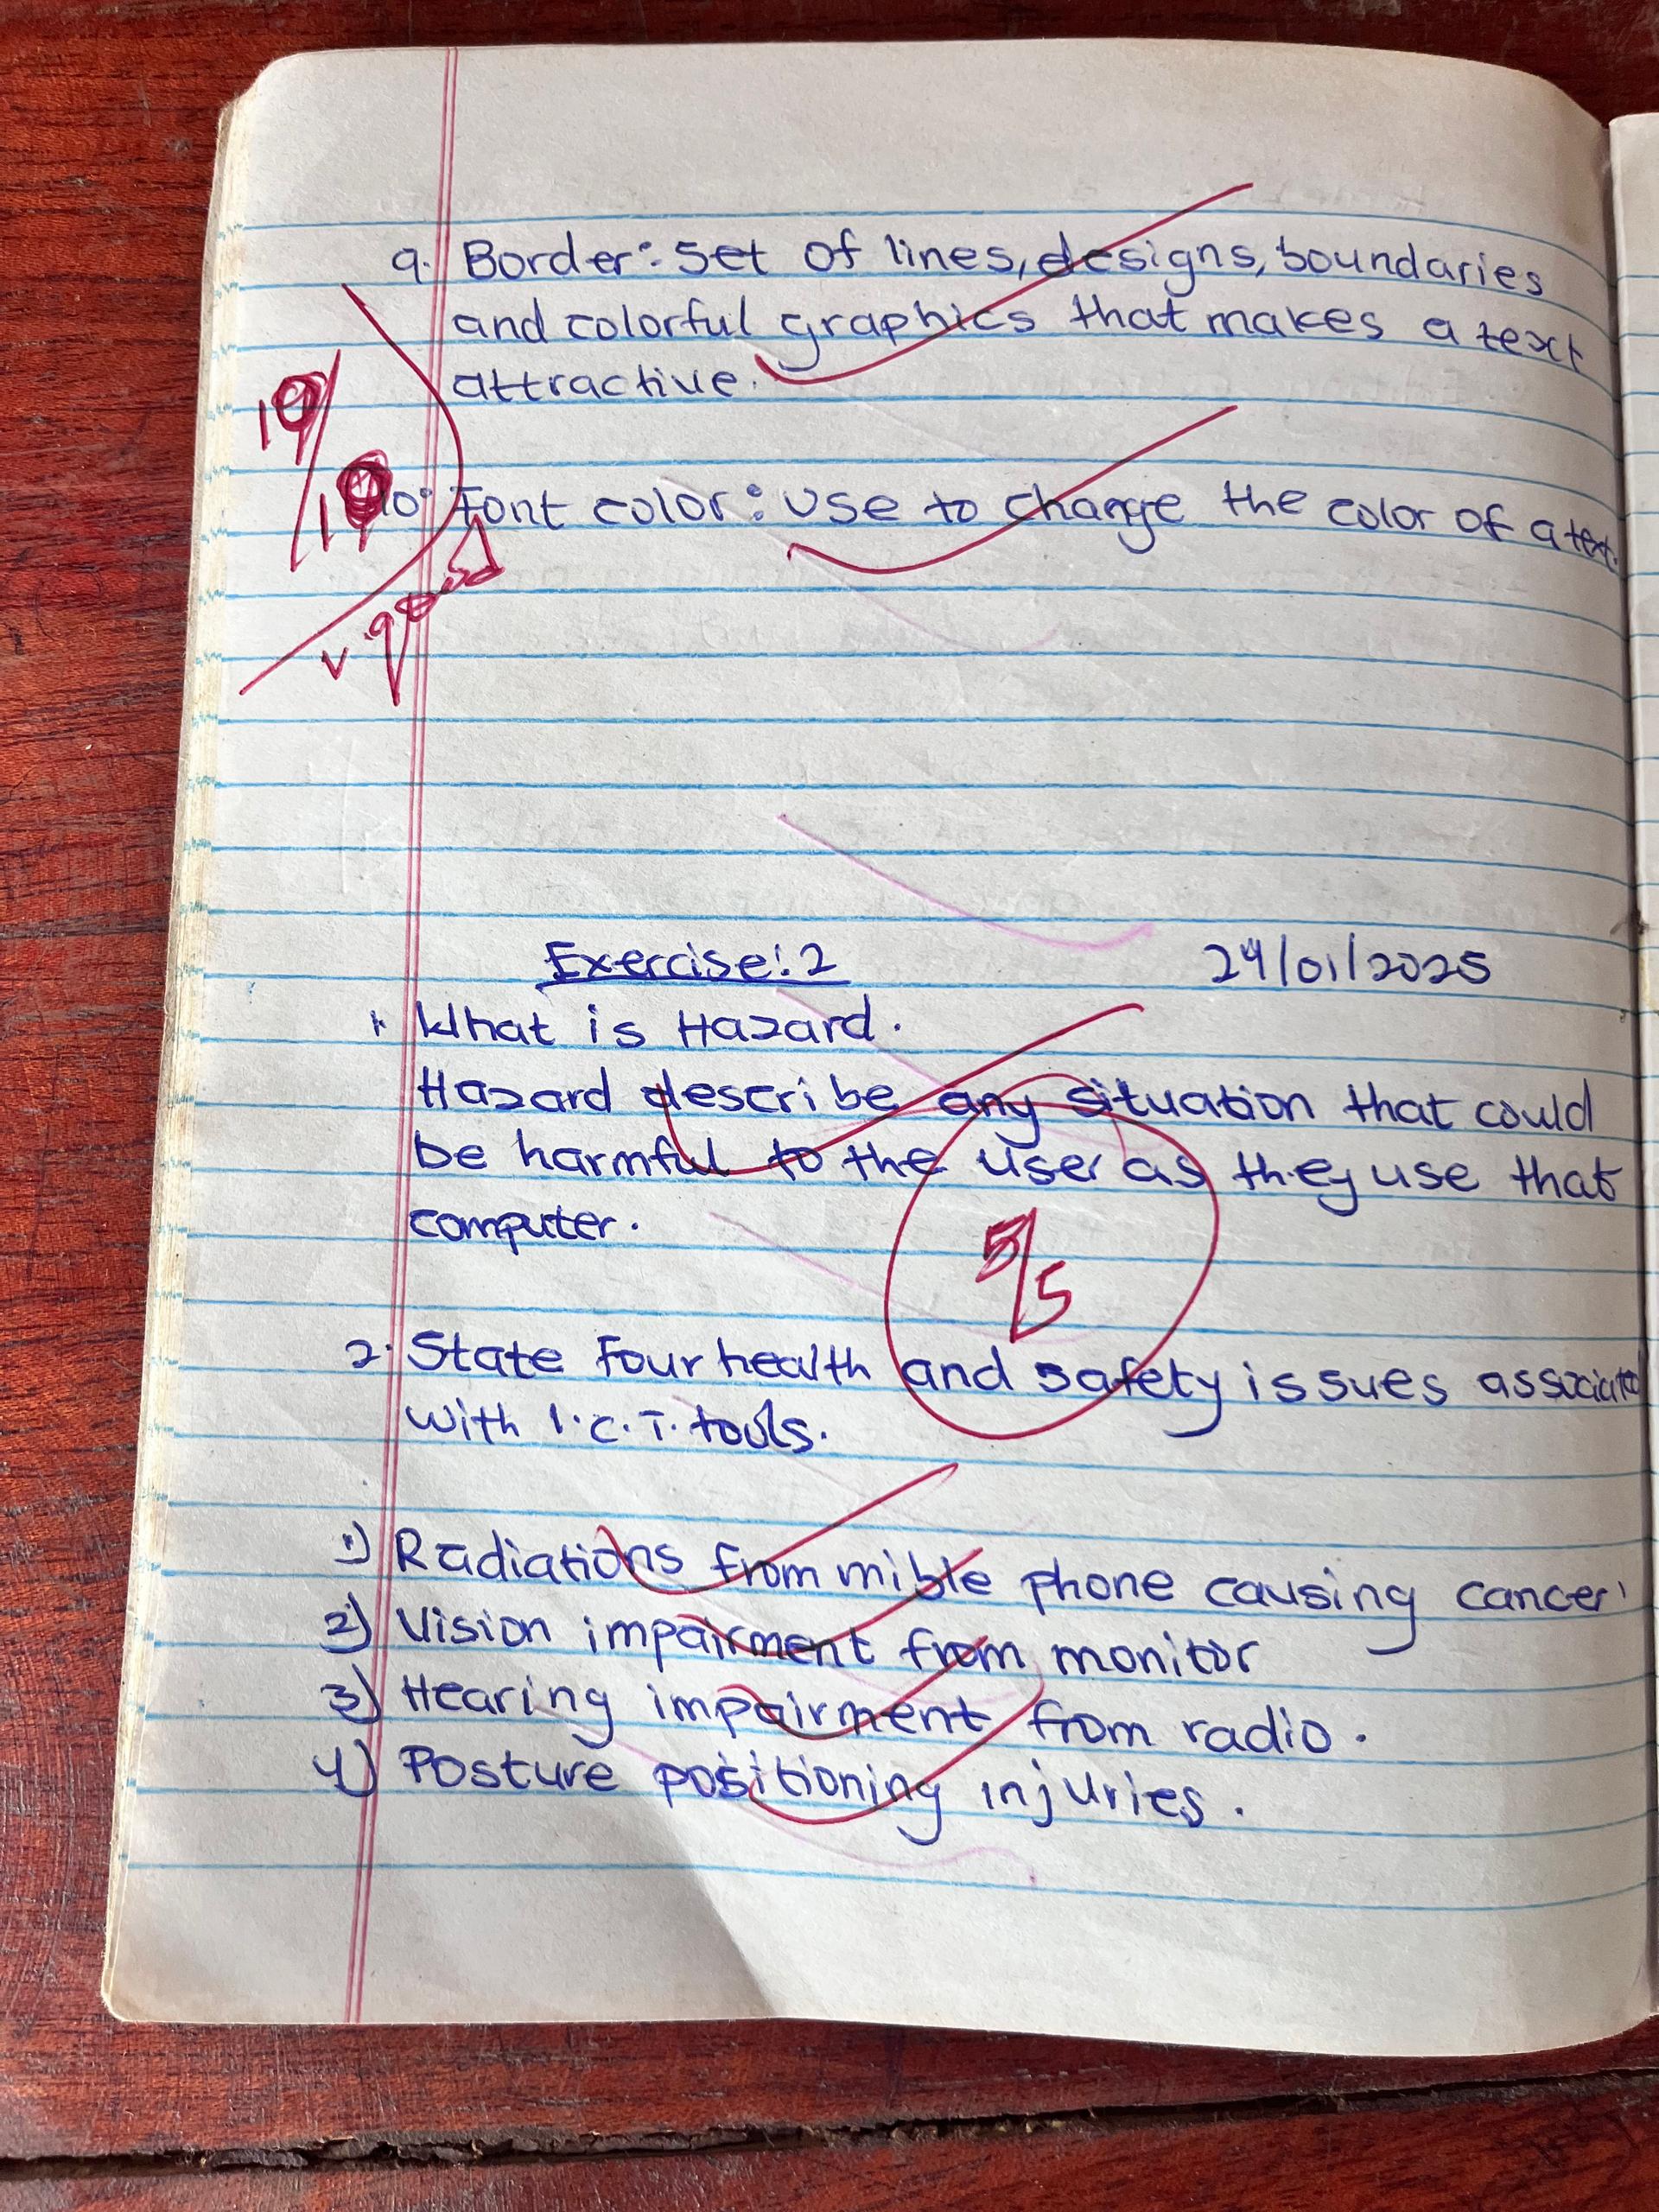 9. Border: set of lines, designs, boundaries
and colorful graphics that makes a text
attractive.
10. Font color: use to change the color of a text.
v. good
Exercise: 2 24/01/2025
1. What is Hazard.
Hazard describe any situation that could
be harmful to the user as they use that
computer.
5/5
2. State Four health and safety issues associated
with I.C.T. tools.
1) Radiations from mible phone causing cancer
2) Vision impairment from monitor
3) Hearing impairment from radio.
4) Posture positioning injuries.